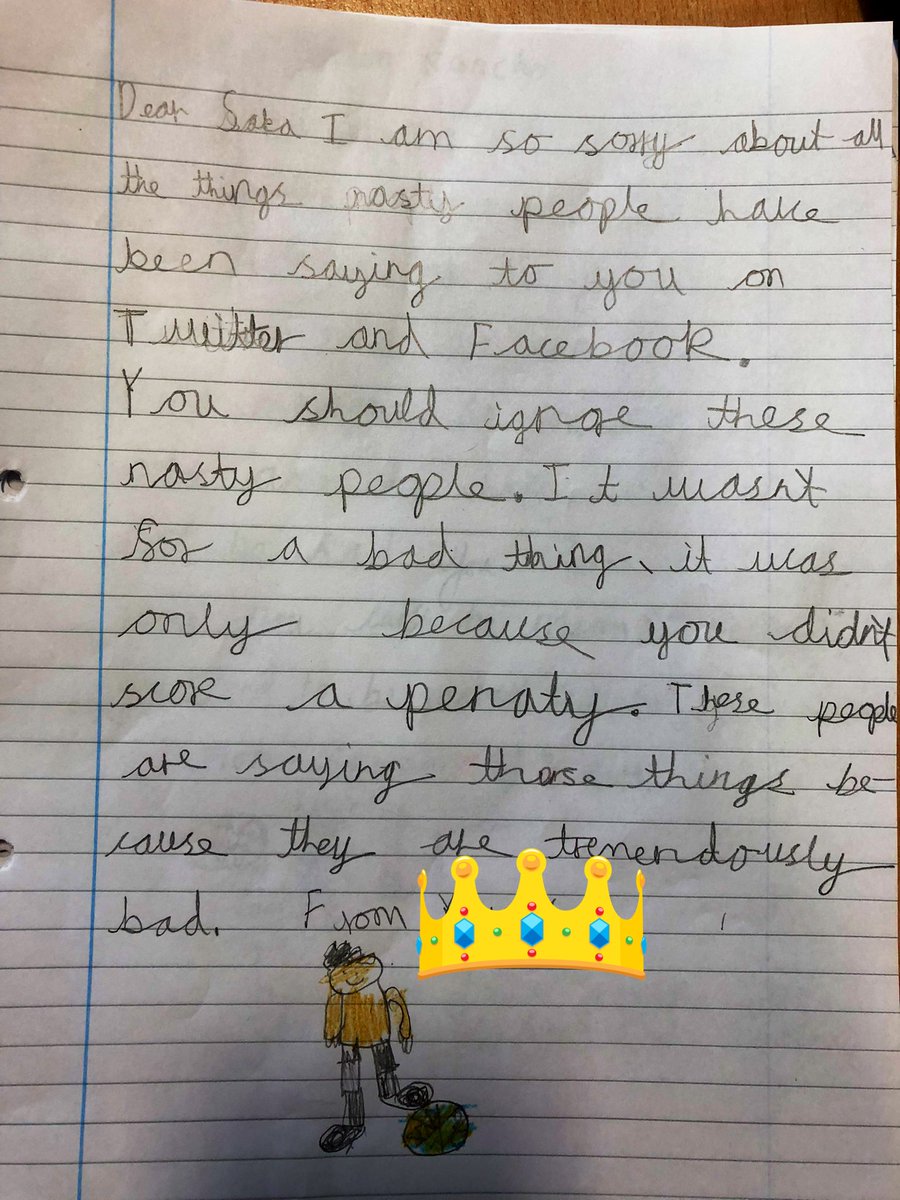 Dear Saka I am so sorry about all
the things nasty people have
been saying to you on
Twitter and Facebook.
You should ignore these
nasty people. It wasn't
for a bad thing, it was
only because you didn't
score a penaty. These people
are saying those things be-
cause they are tremendously
bad. From